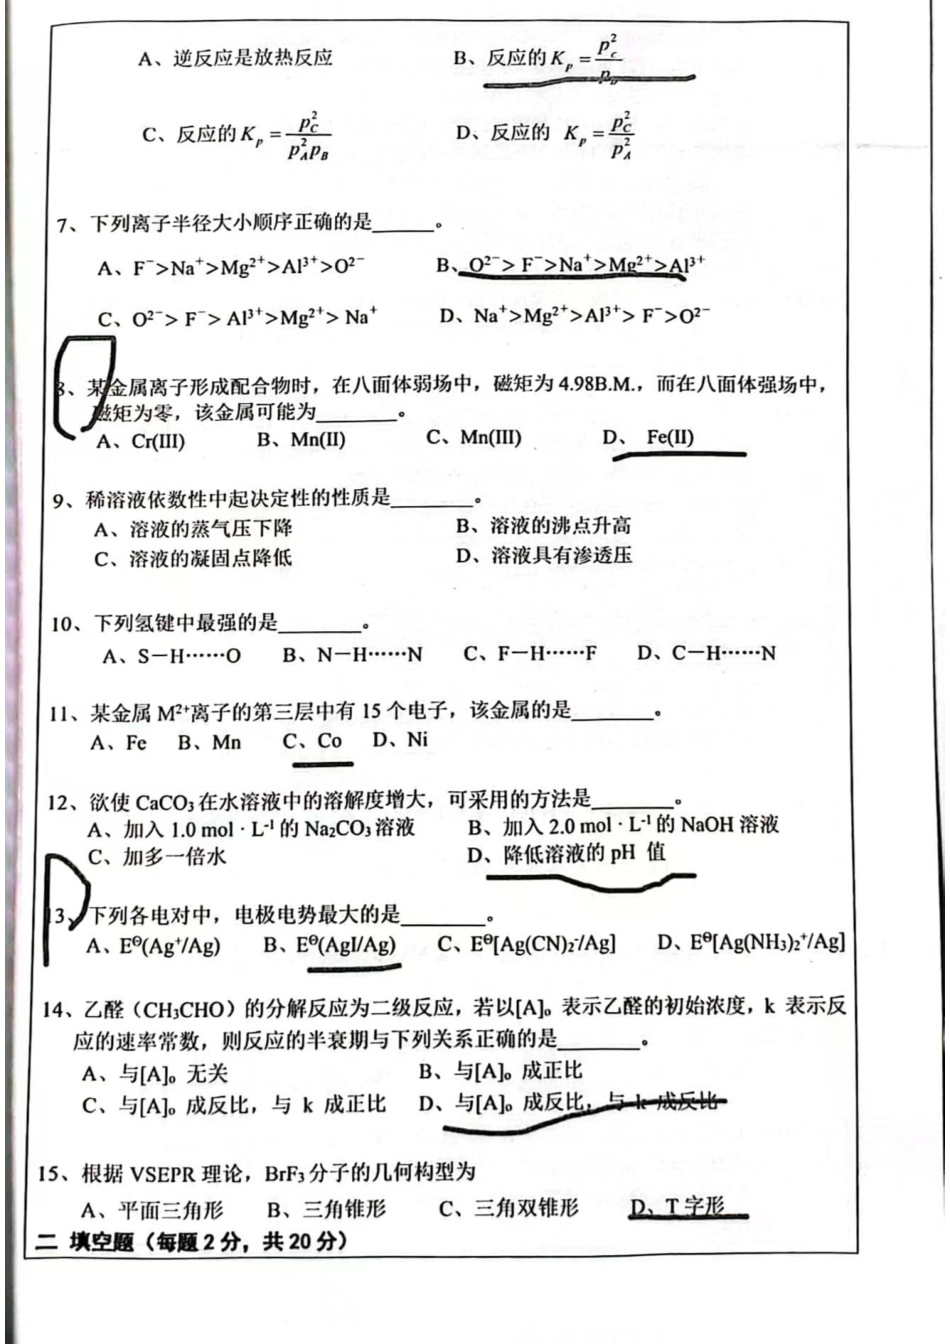 A、逆反应是放热反应 B、反应的 K_p = p_c^2 / p_D
C、反应的 K_p = p_C^2 / p_A^2 p_B D、反应的 K_p = p_C^2 / p_A^2
7、下列离子半径大小顺序正确的是______。
A、F⁻>Na⁺>Mg²⁺>Al³⁺>O²⁻ B、O²⁻> F⁻>Na⁺>Mg²⁺>Al³⁺
C、O²⁻> F⁻> Al³⁺>Mg²⁺> Na⁺ D、Na⁺>Mg²⁺>Al³⁺> F⁻>O²⁻
8、某金属离子形成配合物时，在八面体弱场中，磁矩为 4.98B.M.，而在八面体强场中，
磁矩为零，该金属可能为________。
A、Cr(III) B、Mn(II) C、Mn(III) D、 Fe(II)
9、稀溶液依数性中起决定性的性质是________。
A、溶液的蒸气压下降 B、溶液的沸点升高
C、溶液的凝固点降低 D、溶液具有渗透压
10、下列氢键中最强的是________。
A、S－H……O B、N－H……N C、F－H……F D、C－H……N
11、某金属 M²⁺离子的第三层中有 15 个电子，该金属的是________。
A、Fe B、Mn C、Co D、Ni
12、欲使 CaCO₃ 在水溶液中的溶解度增大，可采用的方法是________。
A、加入 1.0 mol · L⁻¹ 的 Na₂CO₃ 溶液 B、加入 2.0 mol · L⁻¹ 的 NaOH 溶液
C、加多一倍水 D、降低溶液的 pH 值
13、下列各电对中，电极电势最大的是________。
A、E^Θ(Ag⁺/Ag) B、E^Θ(AgI/Ag) C、E^Θ[Ag(CN)₂⁻/Ag] D、E^Θ[Ag(NH₃)₂⁺/Ag]
14、乙醛（CH₃CHO）的分解反应为二级反应，若以[A]₀ 表示乙醛的初始浓度，k 表示反
应的速率常数，则反应的半衰期与下列关系正确的是________。
A、与[A]₀ 无关 B、与[A]₀ 成正比
C、与[A]₀ 成反比，与 k 成正比 D、与[A]₀ 成反比，与 k 成反比
15、根据 VSEPR 理论，BrF₃ 分子的几何构型为
A、平面三角形 B、三角锥形 C、三角双锥形 D、T 字形
二 填空题（每题 2 分，共 20 分）